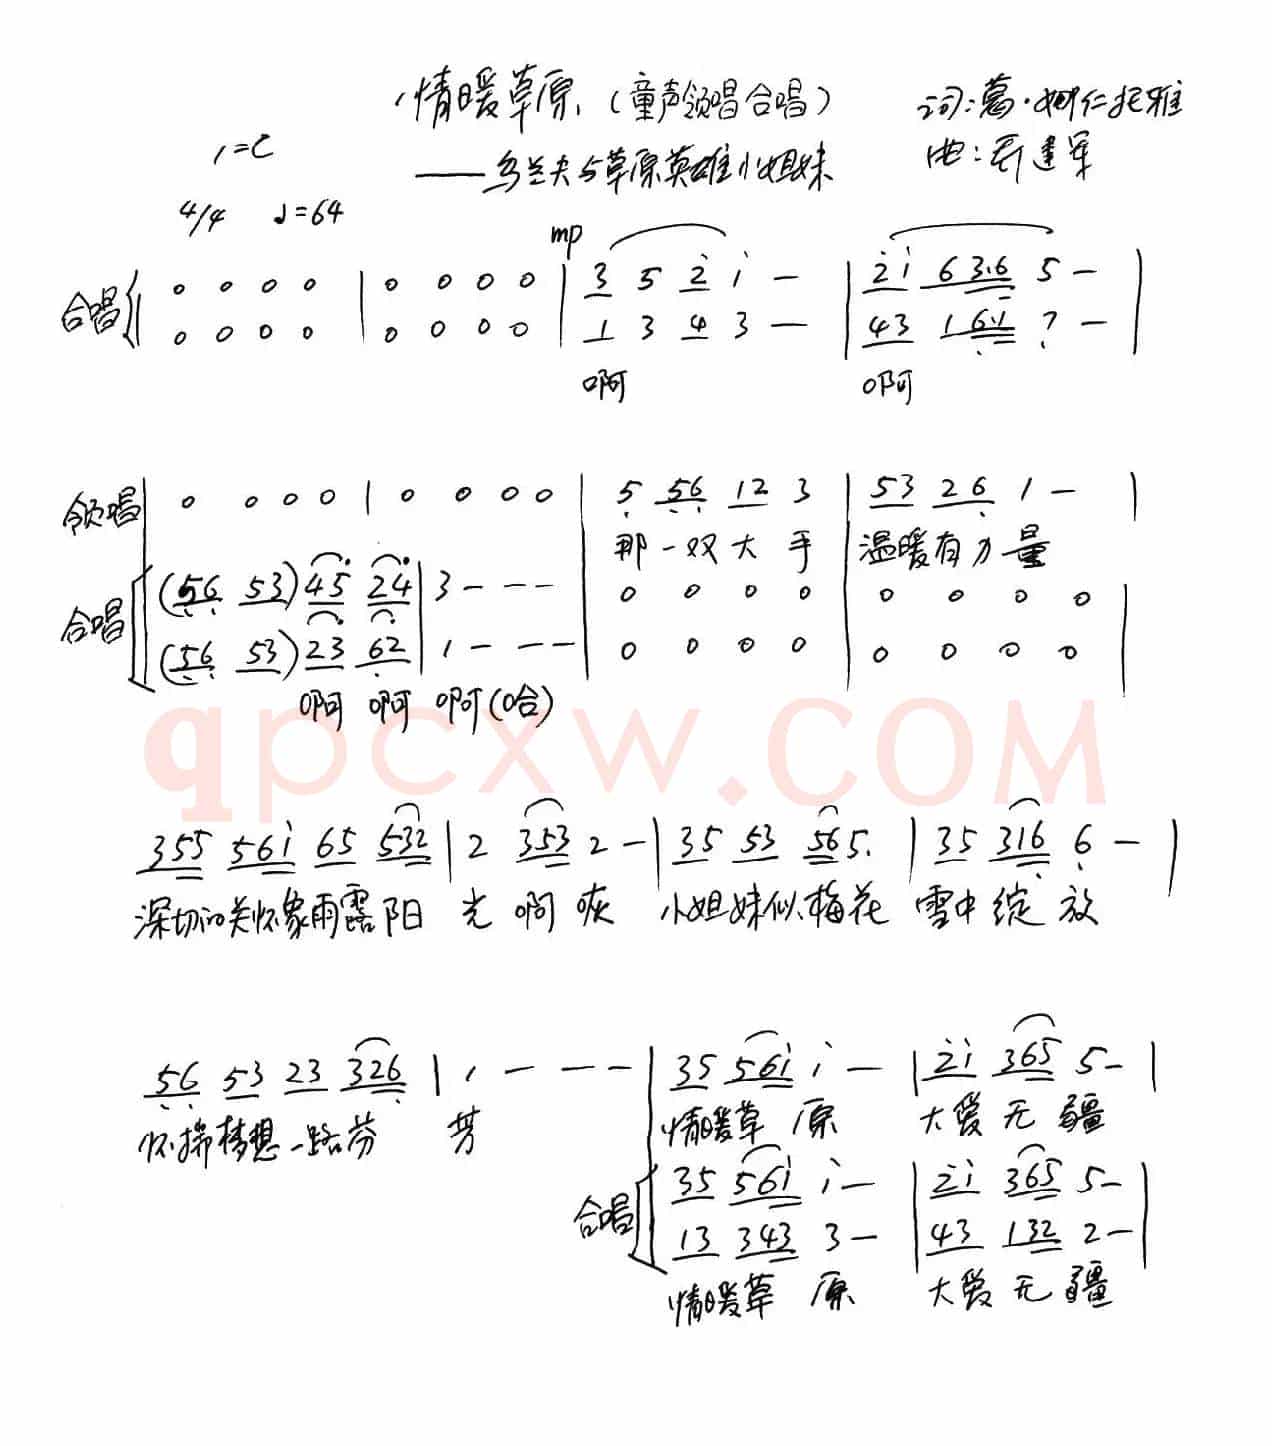 情暖草原（童声领唱合唱）
词：葛·娜仁托雅
1=C
——乌兰夫与草原英雄小姐妹
曲：乔建军
4/4 ♩=64
mp
合唱 0 0 0 0 | 0 0 0 0 | 3 5 2̇ 1̇ — | 2̇1̇ 6 3.6 5 — |
0 0 0 0 | 0 0 0 0 | 1 3 4 3 — | 43 1 6.1 7 — |
啊 啊
领唱 0 0 0 0 | 0 0 0 0 | 5 56 12 3 | 53 26 1 — |
那一双大手 温暖有力量
合唱 (56 53) 45 24 | 3 - - - | 0 0 0 0 | 0 0 0 0
(56 53) 23 62 | 1 - - - | 0 0 0 0 | 0 0 0 0
啊 啊 啊(哈)
qpcxw.COM
355 561̇ 65 532 | 2 353 2 — | 35 53 56 5. | 35 316 6 — |
深切的关怀象雨露阳 光 啊 咴 小姐妹似梅花 雪中绽 放
56 53 23 326 | 1 - - - | 35 561̇ 1̇ — | 2̇1̇ 365 5 — |
怀揣梦想一路芬 芳 情暖草 原 大爱无 疆
合唱 35 561̇ 1̇ — | 2̇1̇ 365 5 — |
13 343 3 — | 43 132 2 — |
情暖草 原 大爱无 疆